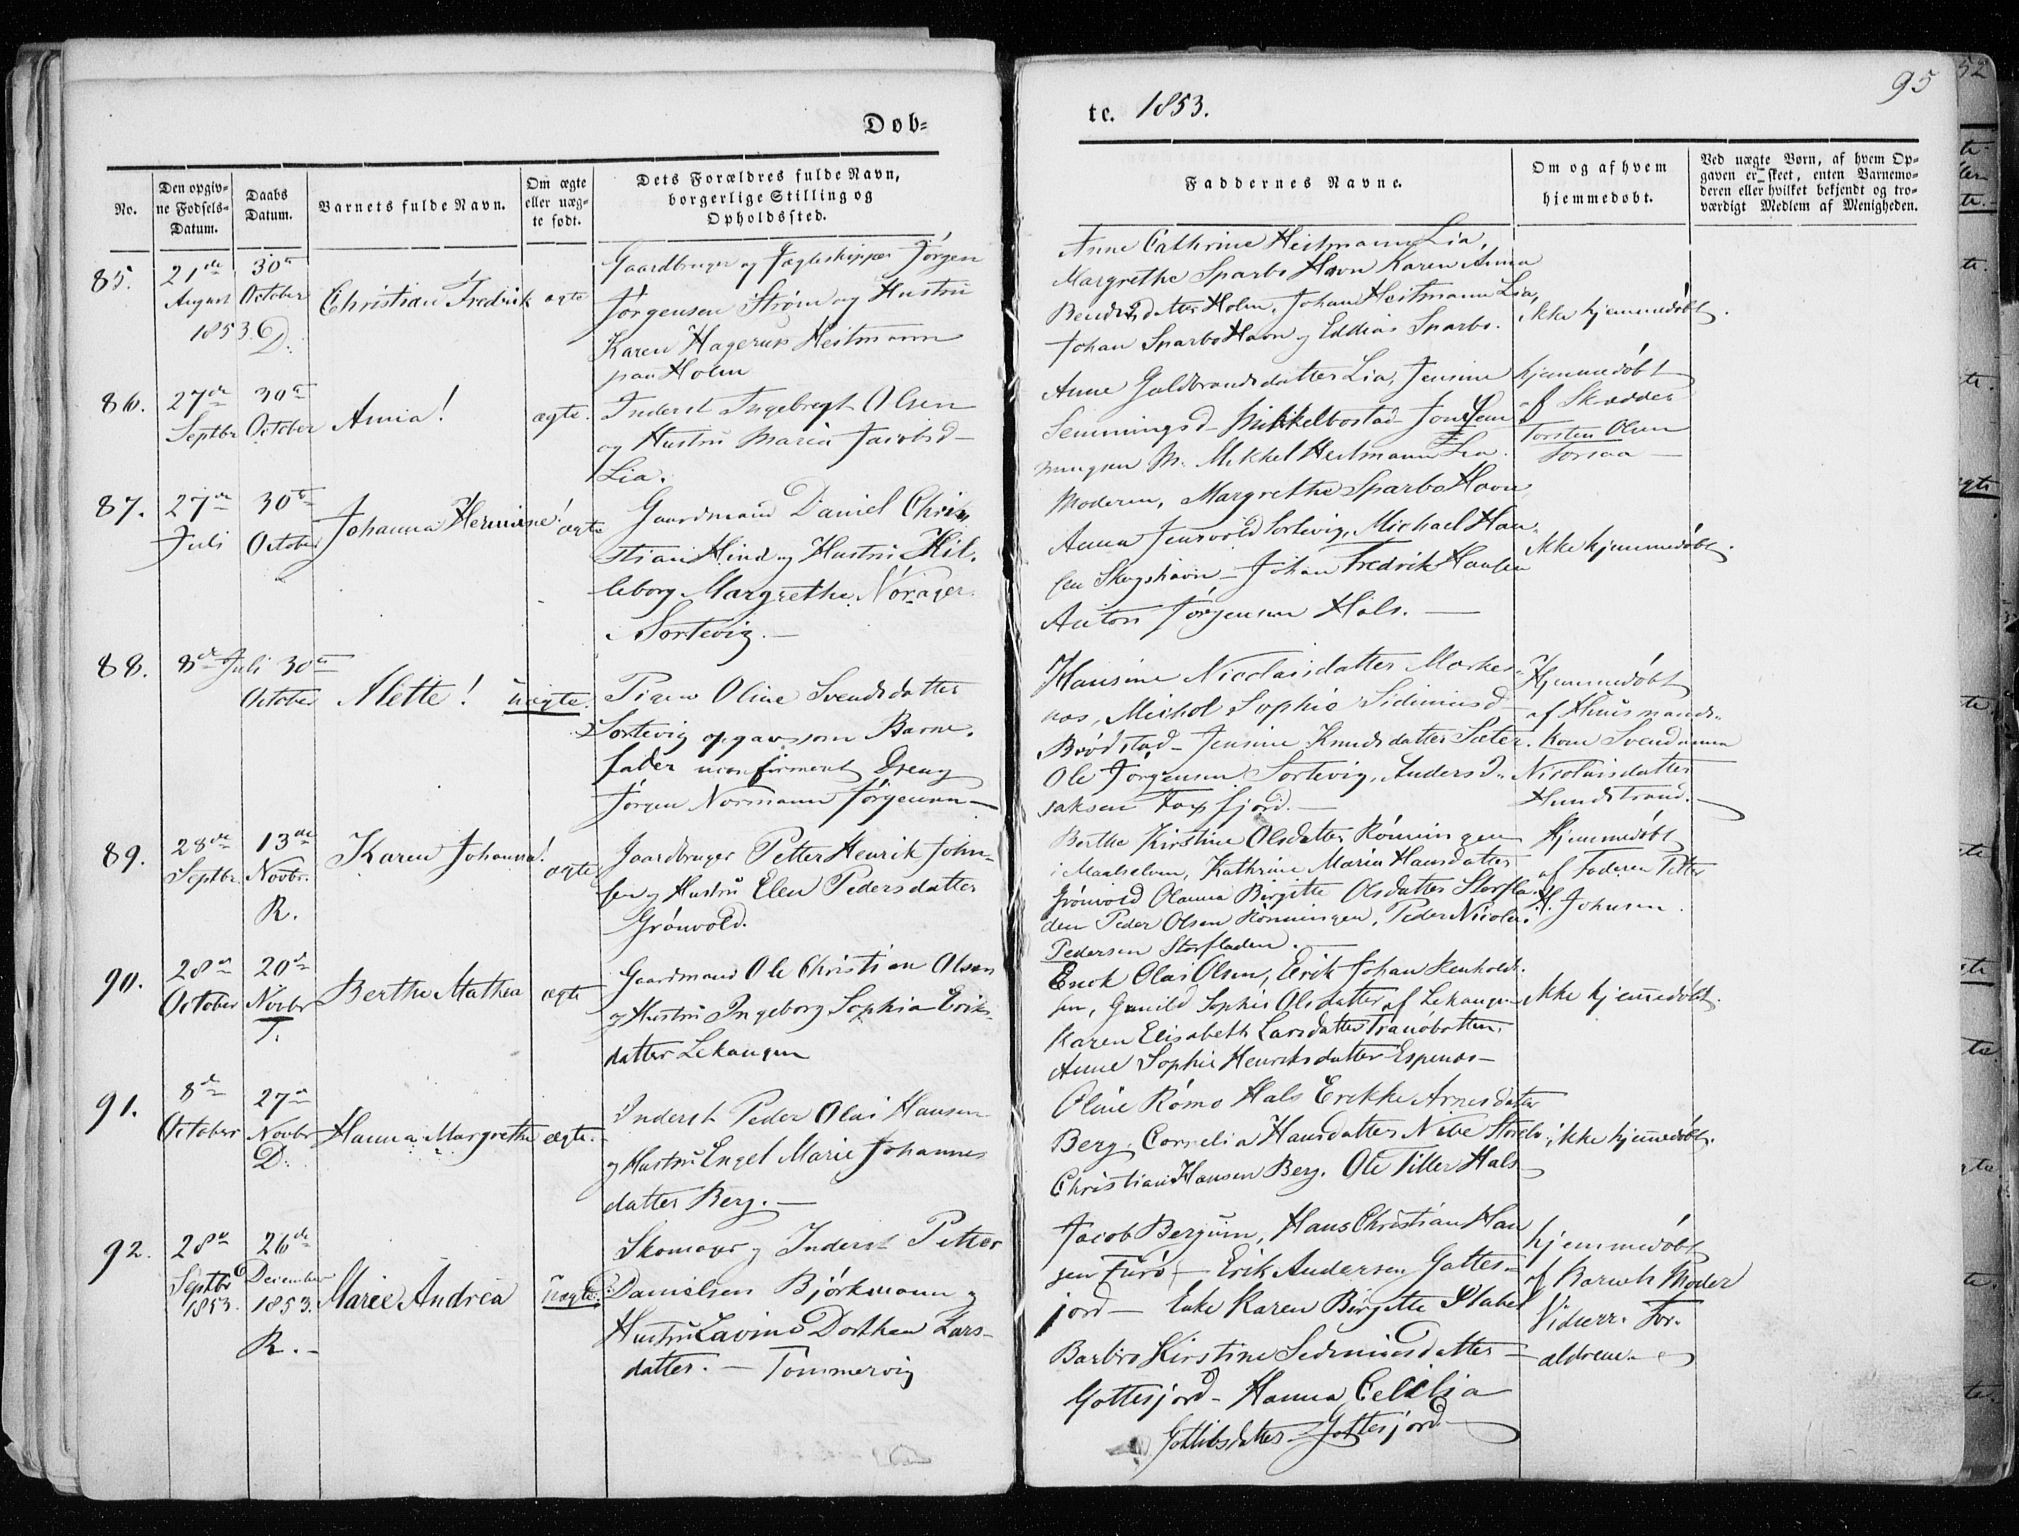 Døb=
te. 1853.
95
52
No.
Den opgiv-
ne Fødsels-
Datum.
Daabs
Datum.
Barnets fulde Navn.
Om ægte
eller uæg-
te født.
Dets Forældres fulde Navn,
borgerlige Stilling og
Opholdssted.
Faddernes Navne.
Om og af hvem
hjemmedøbt.
Ved uægte Børn, af hvem Op-
gaven er skeet, enten Barnemo-
deren eller hvilket bekjendt og tro-
værdigt Medlem af Menigheden.
85.
21de
August
1853
30te
October
D.
Christian Fredrik
ægte
Gaardbruger og Jægteskipper Jørgen
Jørgensen Strøm og Hustru
Karen Hagerup Heitmann
paa Holm
Anne Cathrine Heitmann Lia,
Margrethe Sparbo Havn Karen Anna
Bendiksdatter Holm, Johan Heitmann Lia,
Johan Sparbo Havn og Eddias Sparbo.
ikke hjemmedøbt.
86.
27de
Septbr
30te
October
Anna!
ægte.
Inderst Ingebregt Olsen
og Hustru Maria Jacobsd-
Lia.
Anne Guldbrandsdatter Lia, Jensine
Semmingsd- Mikkelbostad Jon Sem
mingsen M. Mikkel Heitmann Lia.
Moderen, Margrethe Sparbo Havn
hjemmedøbt
af Skrædder
Torsten Olsen
Torsaa
87.
27de
Juli
30te
October
Johanna Hermine!
ægte
Gaardmand Daniel Chri-
stian Hind og Hustru Hil-
leborg Margrethe Nórager
Sortevig.
Anna Jensvold Sortevig, Michael Han-
sen Skogshavn - Johan Fredrik Hansen
Anton Jørgensen Hals.
ikke hjemmedøbt.
88.
8de Juli
30te
October
Mette!
uægte.
Pigen Oline Svendsdatter
Sortevig opgav som Barne-
fader uconfirmeret Dreng
Jørgen Normann Jørgensen
Hansine Nicolaisdatter Markes-
nes, Michol Sophie Sidiniusd
Brødstad - Jensine Knudsdatter Sæter.
Ole Jørgensen Sortevig, Anders I-
saksen Faxfjord.
Hjemmedøbt
af Huusmands-
kone Svendanna
Nicolaisdatter
Hundstrand.
89.
28de
Septbr.
13de
Novbr.
R.
Karen Johanna!
ægte
Gaardbruger Petter Henrik John-
sen og Hustru Elen Pedersdatter
Grønvold.
Berthe Kirstine Olsdatter Rønningen
i Maalselven, Kathrine Maria Hansdatter
Grønvold Olanna Birgitte Olsdatter Storfla-
den Peder Olsen Rønningen, Peder Nicolai
Pedersen Storfladen.
Hjemmedøbt
af Faderen Petter
H. Johnsen.
90.
28de
October
20de
Novbr
T.
Berthe Mathea
ægte
Gaardmand Ole Christian Olsen
og Hustru Ingeborg Sophia Eriks-
datter Lekangen
Enok Olai Olsen, Erik Johan Renholdt-
sen, Gunild Sophie Olsdatter af Lekangen
Karen Elisabeth Larsdatter Tranøbotten,
Anne Sophie Henriksdatter Espenæs -
ikke hjemmedøbt.
91.
8de
October
27de
Novbr
D.
Hanna Margrethe
ægte.
Inderst Peder Olai Hansen
og Hustru Engel Marie Johannes
datter Berg.
Oline Rómo Hals Erikke Arnesdatter
Berg, Cornelia Hansdatter
Christian Hansen Berg. Ole Tiller Hals
ikke hjemmedøbt.
92.
28de
Septbr
1853.
26de
December
1853.
R.
Marie Andrea
uægte.
Skomager og Inderst Petter
Danielsen Bjørkmann og
Hustru Lavine Dorthea Lars-
datter. - Tømmervig
Jacob Bergum, Hans Christian Han
sen Furø - Erik Andersen Gottes-
jord - Enke Karen Birgitte Stabel
Barbro Kirstine Sediniusdatter -
Gottesjord - Hanna Cecilia
Gottlibsdatter Gottesjord
hjemmedøbt
af Barnets Moder
Forældrene